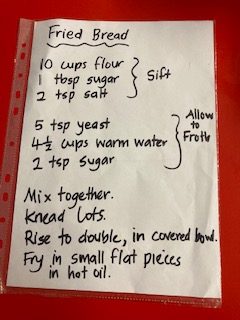 Fried Bread
10 cups flour
1 tbsp sugar
2 tsp salt
Sift
5 tsp yeast
4½ cups warm water
2 tsp sugar
Allow
to
Froth
Mix together.
Knead lots.
Rise to double, in covered bowl.
Fry in small flat pieces
in hot oil.